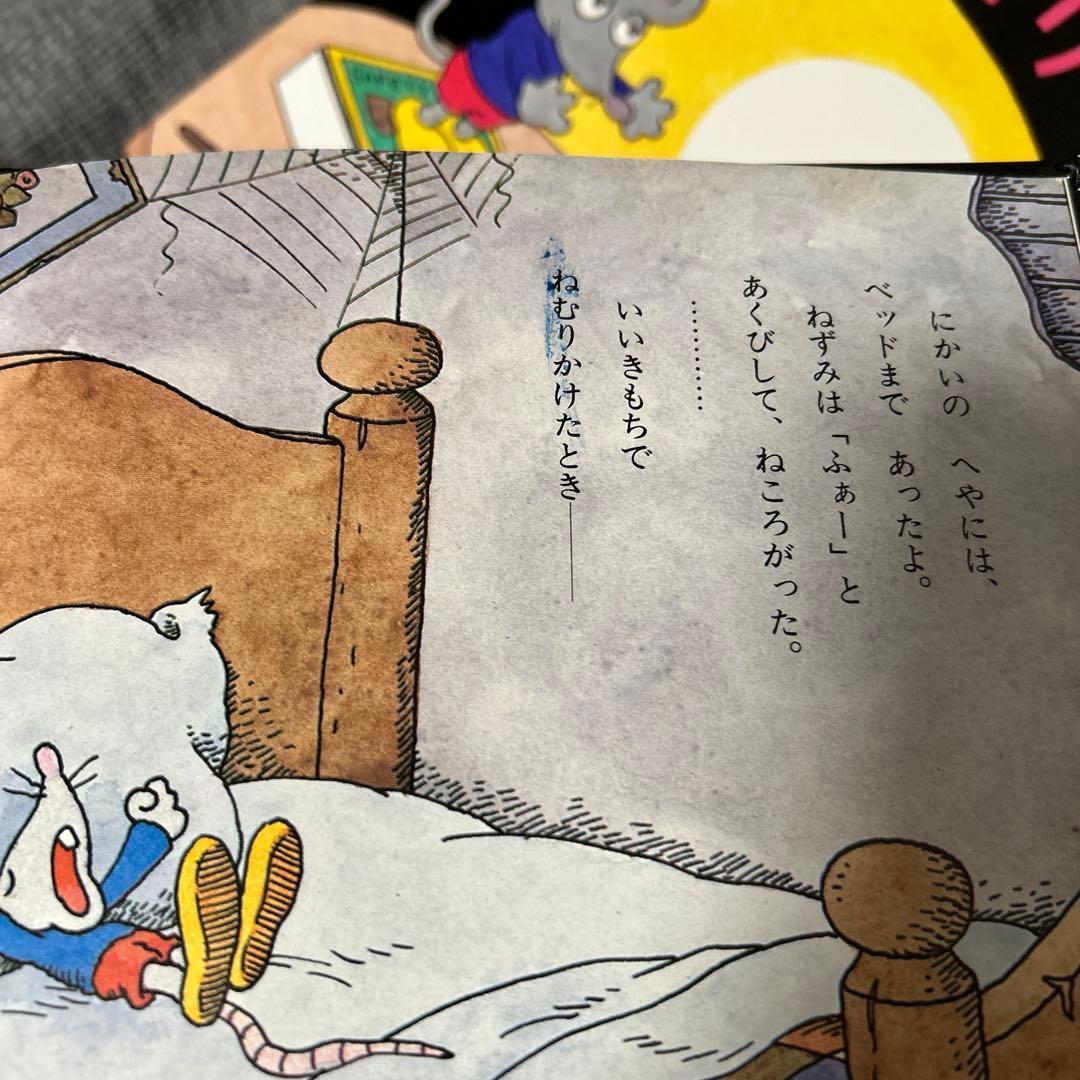 にかいの　へやには、
ベッドまで　あったよ。
ねずみは「ふぁー」と
あくびして、ねころがった。
…………
いいきもちで
ねむりかけたとき――